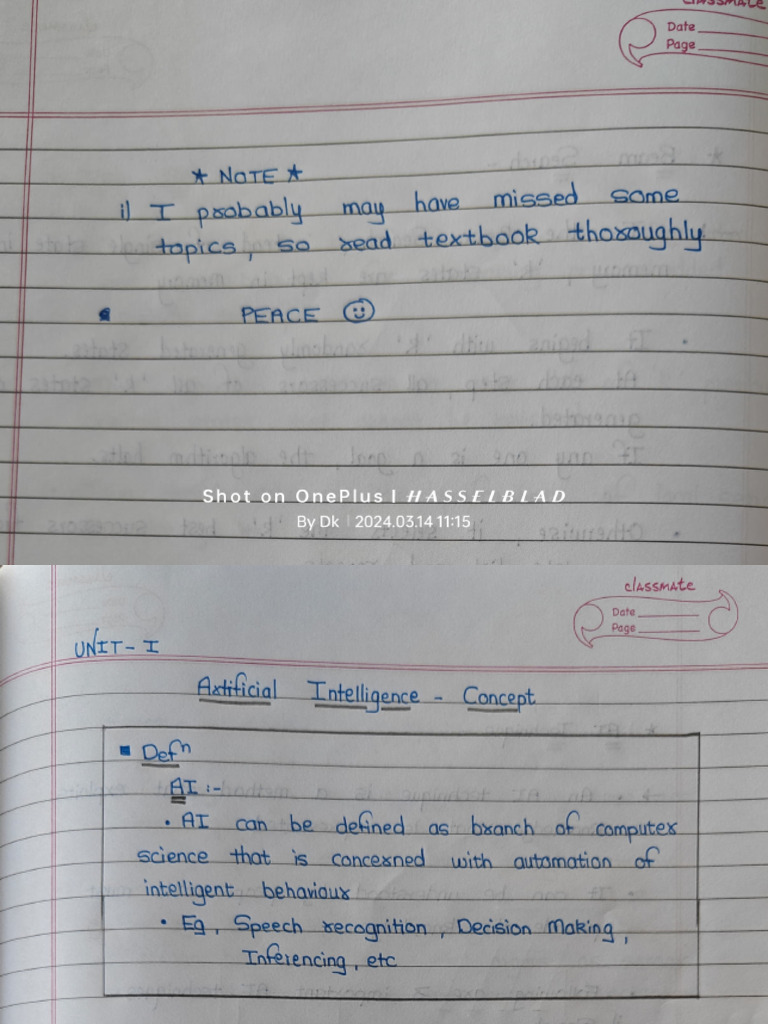 classmate
Date
Page
* NOTE *
i) I probably may have missed some
topics, so read textbook thoroughly
PEACE ☺
Shot on OnePlus | HASSELBLAD
By Dk | 2024.03.14 11:15
classmate
Date
Page
UNIT - I
Artificial Intelligence - Concept
▪ Defn
AI :-
• AI can be defined as branch of computer
science that is concerned with automation of
intelligent behaviour
• Eg, Speech recognition, Decision Making,
Inferencing, etc